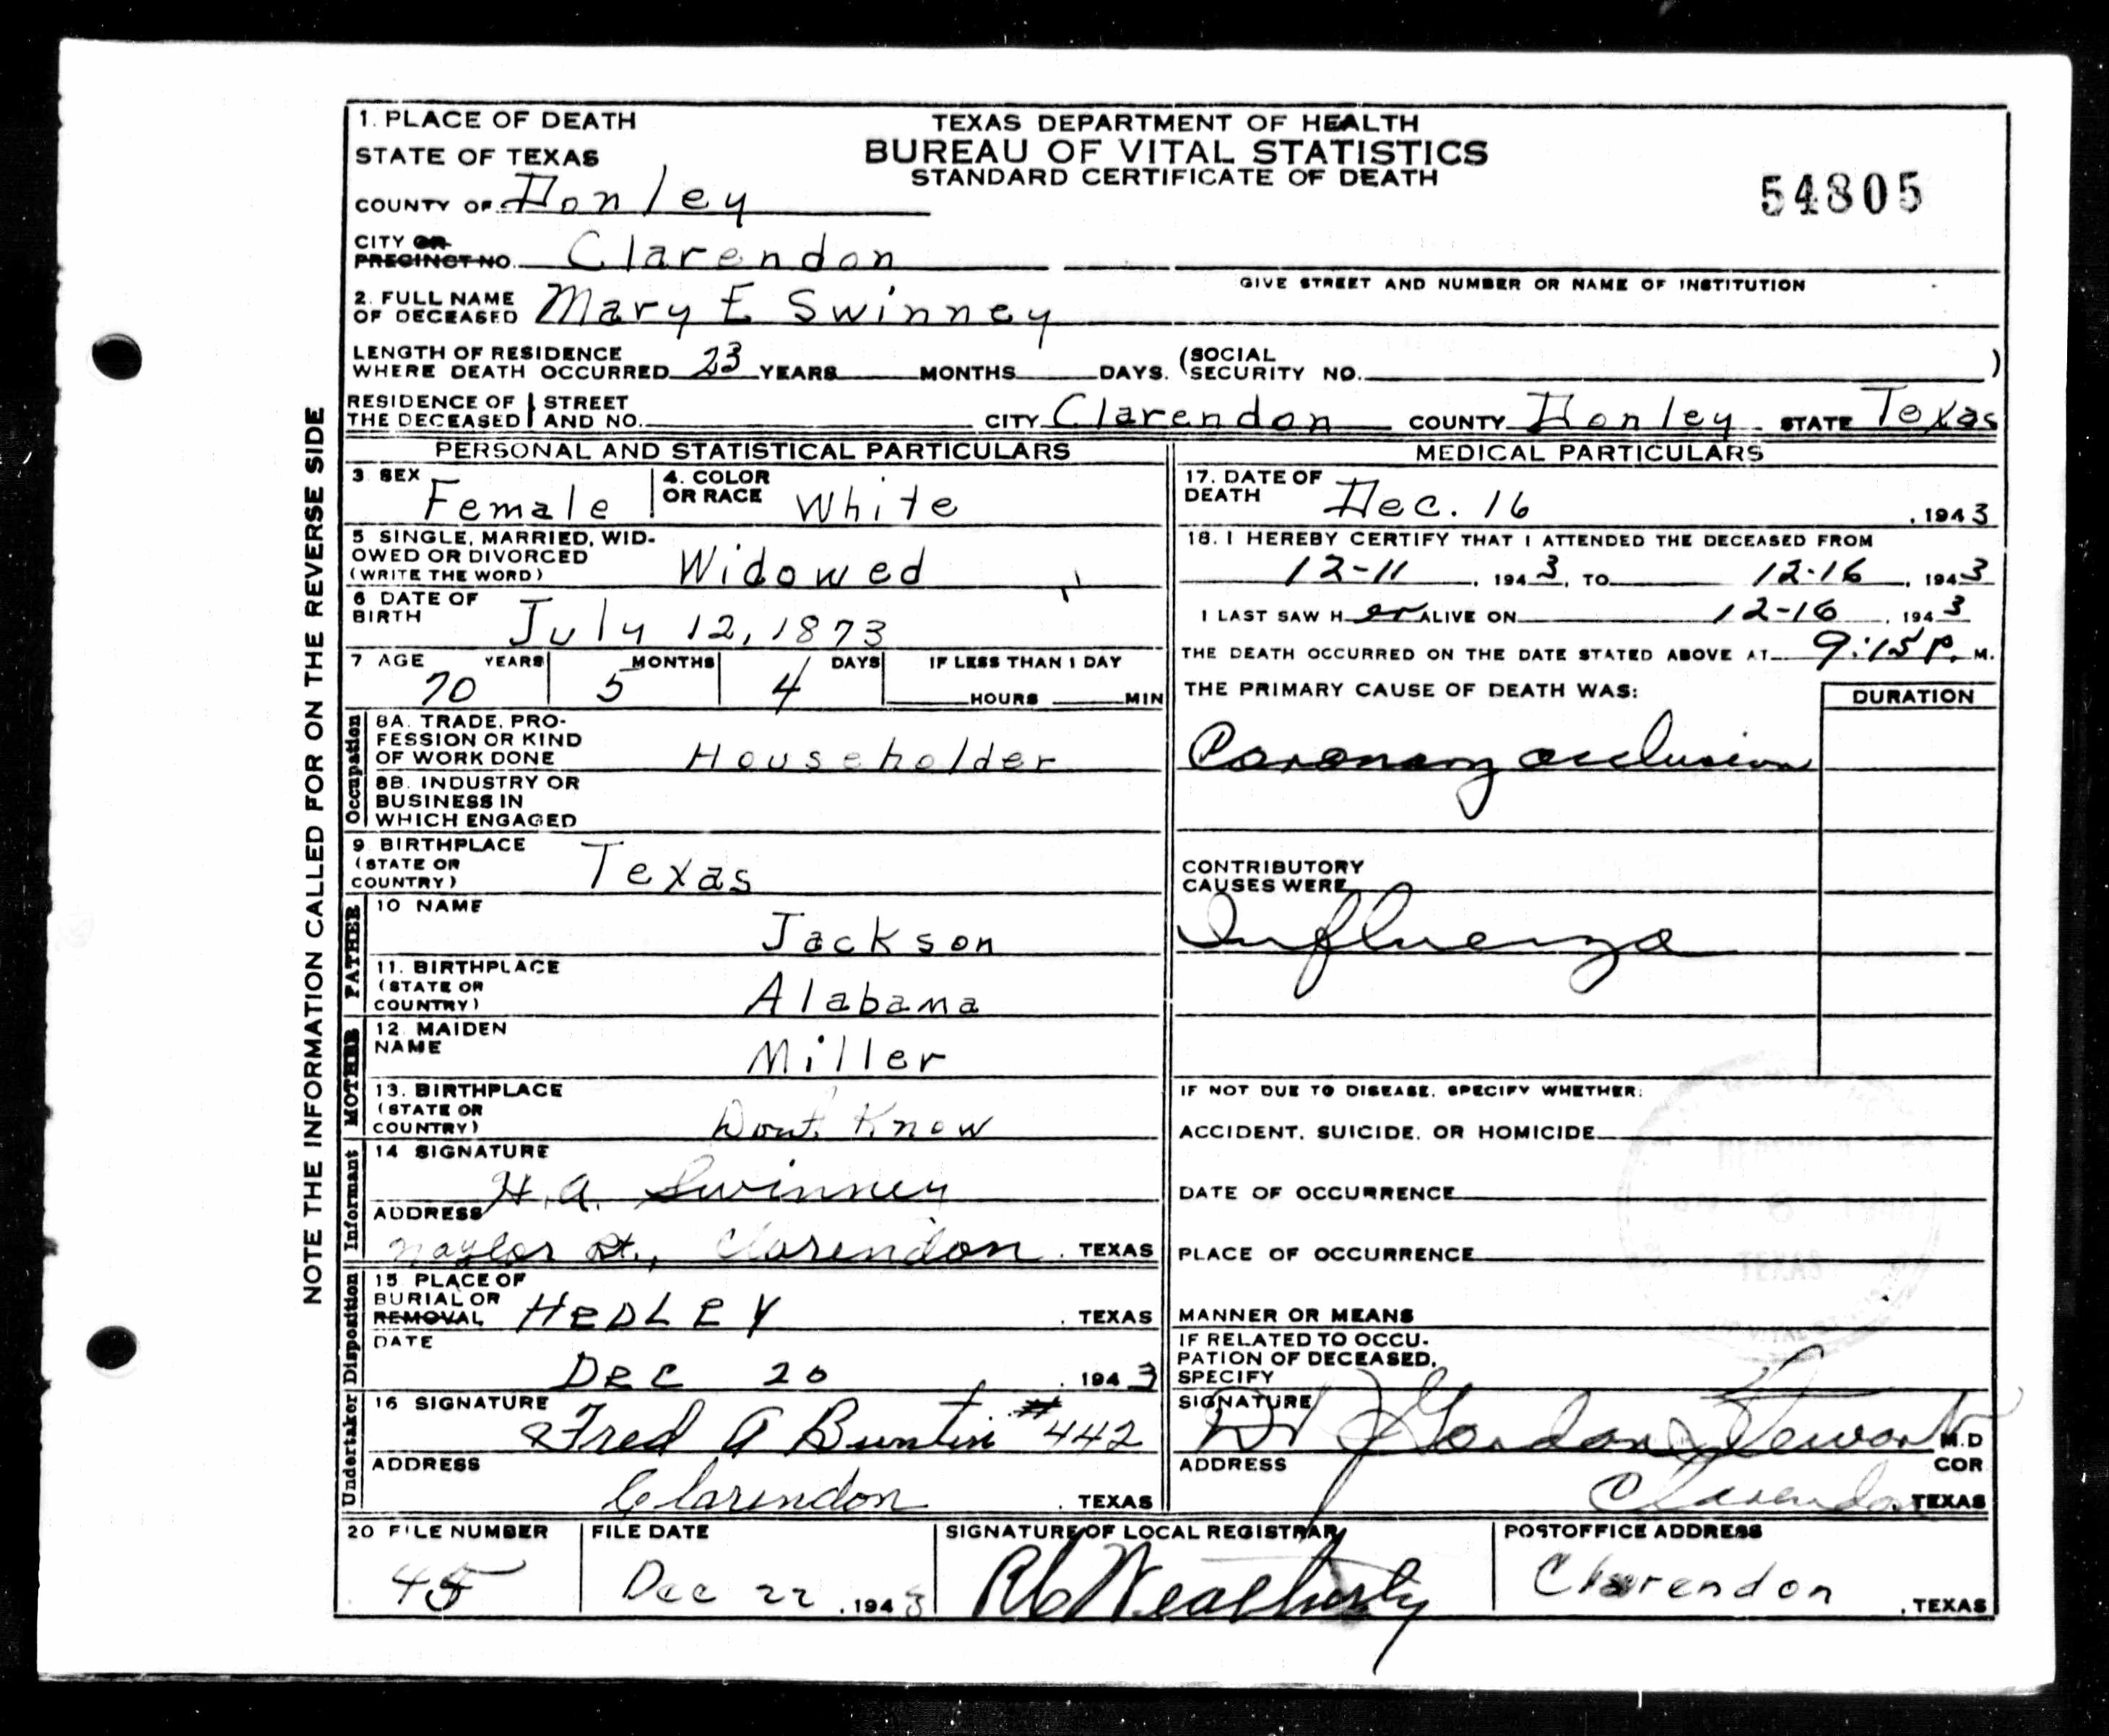 1. PLACE OF DEATH
STATE OF TEXAS
COUNTY OF Donley
CITY OR PRECINCT NO. Clarendon
TEXAS DEPARTMENT OF HEALTH
BUREAU OF VITAL STATISTICS
STANDARD CERTIFICATE OF DEATH
54805
GIVE STREET AND NUMBER OR NAME OF INSTITUTION
2. FULL NAME OF DECEASED Mary E Swinney
LENGTH OF RESIDENCE WHERE DEATH OCCURRED 23 YEARS MONTHS DAYS. (SOCIAL SECURITY NO. )
RESIDENCE OF THE DECEASED STREET AND NO. CITY Clarendon COUNTY Donley STATE Texas
PERSONAL AND STATISTICAL PARTICULARS
3 SEX Female
4. COLOR OR RACE White
5 SINGLE, MARRIED, WIDOWED OR DIVORCED (WRITE THE WORD) Widowed
6 DATE OF BIRTH July 12, 1873
7 AGE YEARS MONTHS DAYS IF LESS THAN 1 DAY
70 5 4 HOURS MIN
Occupation
8A. TRADE, PROFESSION OR KIND OF WORK DONE Householder
8B. INDUSTRY OR BUSINESS IN WHICH ENGAGED
9 BIRTHPLACE (STATE OR COUNTRY) Texas
FATHER
10 NAME Jackson
11. BIRTHPLACE (STATE OR COUNTRY) Alabama
MOTHER
12. MAIDEN NAME Miller
13. BIRTHPLACE (STATE OR COUNTRY) Dont Know
Informant
14 SIGNATURE H. A. Swinney
ADDRESS Naylor Rt., Clarendon. TEXAS
Disposition
15 PLACE OF BURIAL OR REMOVAL HEDLEY. TEXAS
DATE DEC 20, 1943
Undertaker
16 SIGNATURE Fred A Buntin #442
ADDRESS Clarendon. TEXAS
MEDICAL PARTICULARS
17. DATE OF DEATH Dec. 16, 1943
18. I HEREBY CERTIFY THAT I ATTENDED THE DECEASED FROM
12-11, 1943, TO 12-16, 1943
I LAST SAW H er ALIVE ON 12-16, 1943
THE DEATH OCCURRED ON THE DATE STATED ABOVE AT 9:15 P. M.
THE PRIMARY CAUSE OF DEATH WAS: DURATION
Coronary occlusion
CONTRIBUTORY CAUSES WERE
Influenza
IF NOT DUE TO DISEASE, SPECIFY WHETHER:
ACCIDENT, SUICIDE, OR HOMICIDE
DATE OF OCCURRENCE
PLACE OF OCCURRENCE
MANNER OR MEANS
IF RELATED TO OCCUPATION OF DECEASED, SPECIFY
SIGNATURE Dr J Gordon Stewart M.D
COR
ADDRESS Clarendon, TEXAS
20 FILE NUMBER 45
FILE DATE Dec 22, 1943
SIGNATURE OF LOCAL REGISTRAR RC Weatherly
POSTOFFICE ADDRESS Clarendon, TEXAS
NOTE THE INFORMATION CALLED FOR ON THE REVERSE SIDE
TEXAS